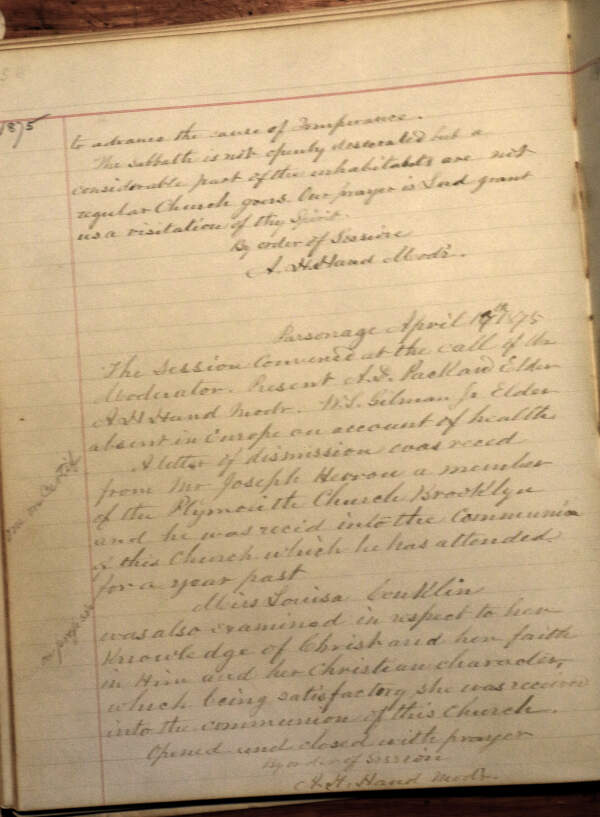 1875
to advance the cause of Temperance.
The Sabbath is not openly desecrated but a
considerable part of the inhabitants are not
regular Church goers. Our prayer is Lord grant
us a visitation of thy Spirit.
By order of Session
A. H. Hand Modr.
Parsonage April 1875
The Session Convened at the call of the
Moderator. Present A.D. Packard Elder
A H Hand Modr. W.S. Gilman Jr Elder
absent in Europe on account of health
A letter of dismission was recd
from Mr Joseph Herron a member
of the Plymouth Church Brooklyn
and he was recid into the Communion
of this Church which he has attended
for a year past
one on Certif
Miss Louisa Conklin
was also examined in respect to her
Knowledge of Christ and her faith
in Him and her Christian character,
which being satisfactory she was received
into the communion of this Church.
Opened and closed with prayer
By order of Session
A. H. Hand Modr.